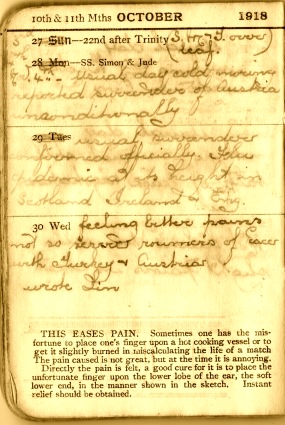 10th & 11th Mths OCTOBER 1918
27 Sun—22nd after Trinity (S, M, T over
28 Mon—SS. Simon & Jude leaf.
usual day cold morning
reported surrender of Austria
unconditionally
29 Tues usual surrender
informed officially. Flu
epidemic at its height in
Scotland Ireland & Eng.
30 Wed feeling better pains
not so servire roumers of Peace
with Turkey & Austria
wrote
THIS EASES PAIN. Sometimes one has the mis-
fortune to place one's finger upon a hot cooking vessel or to
get it slightly burned in miscalculating the life of a match
The pain caused is not great, but at the time it is annoying.
Directly the pain is felt, a good cure for it is to place the
unfortunate finger upon the lower lobe of the ear, the soft
lower end, in the manner shown in the sketch. Instant
relief should be obtained.